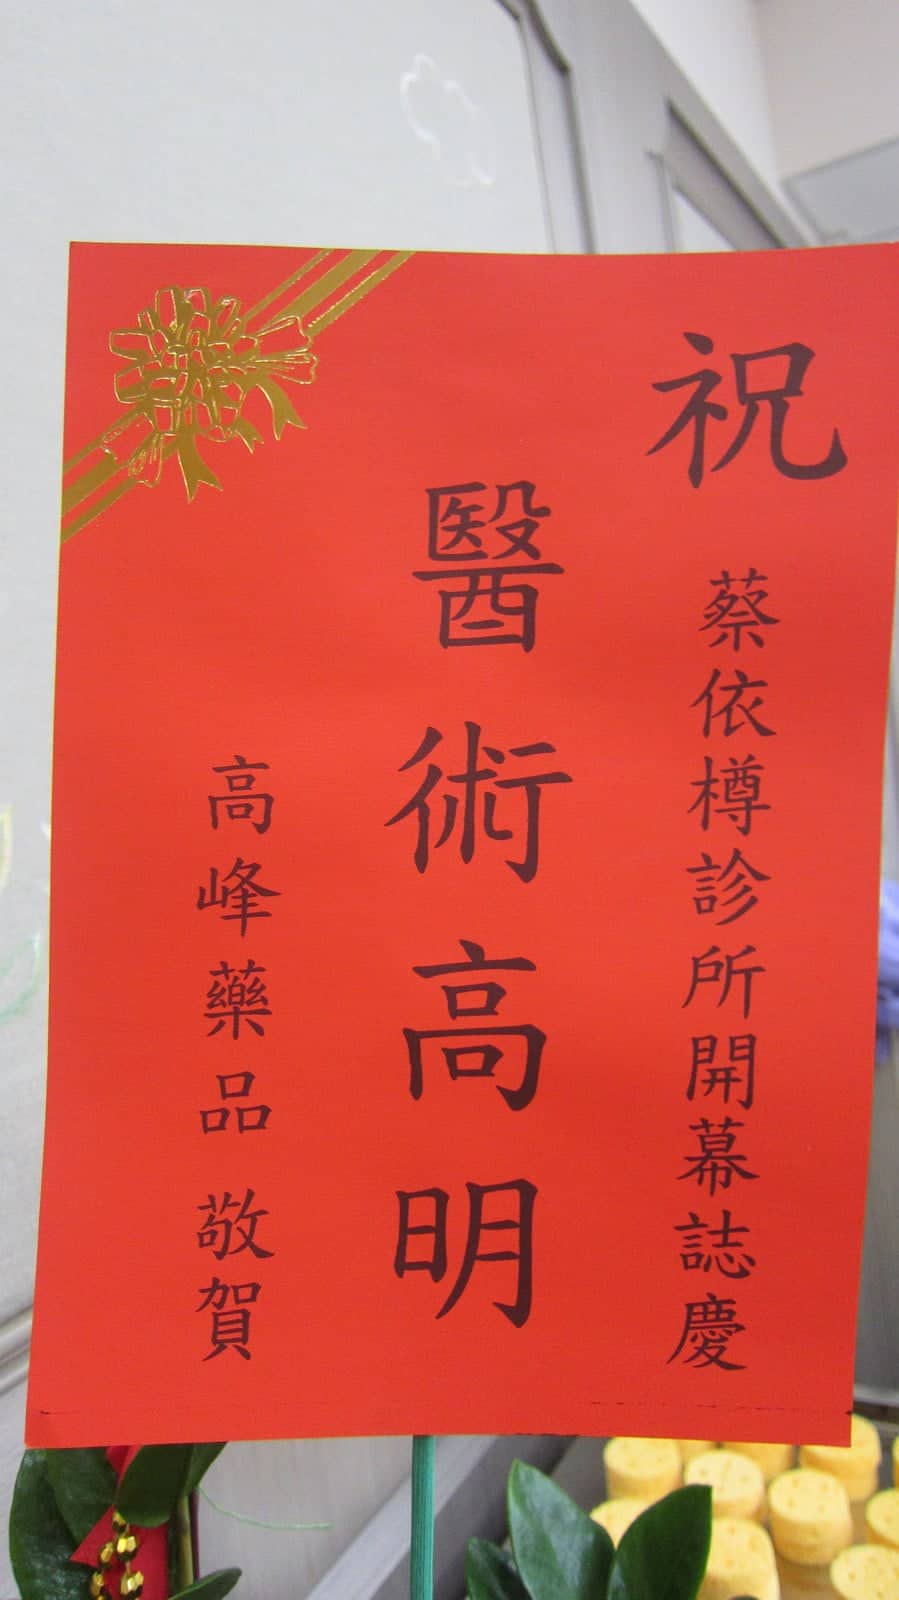 祝 蔡依樽診所開幕誌慶
醫術高明
高峰藥品 敬賀